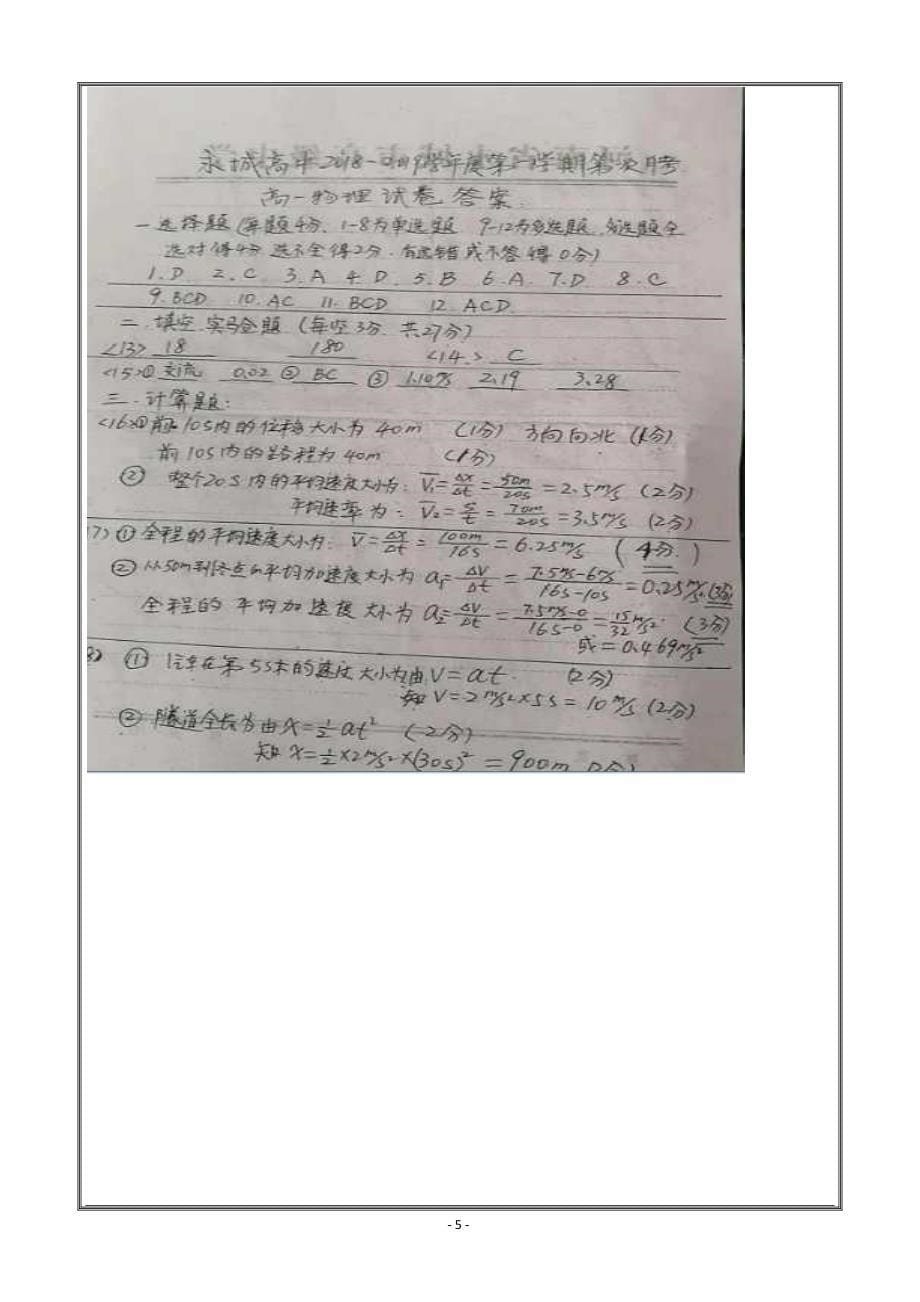 永城高中2018-2019学年度第一学期第一次月考
高一物理试卷答案.
一.选择题(每题4分、1-8为单选题 9-12为多选题、多选题全
选对得4分 选不全得2分.有选错或不答得0分)
1.D 2.C 3.A 4.D 5.B 6.A 7.D 8.C
9.BCD 10.AC 11.BCD 12.ACD
二.填空.实验题(每空3分.共27分)
<13> 18 180 <14.> C
<15>① 交流 0.02 ② BC ③ 1.10 m/s 2.19 3.28
三.计算题:
<16>①前10s内的位移大小为 40m (1分) 方向向北(1分)
前10s内的路程为40m (1分)
② 整个20s内的平均速度大小为: V̅₁=Δx/Δt=50m/20s=2.5m/s (2分)
平均速率为: V̅₂=s/t=70m/20s=3.5m/s (2分)
17>①全程的平均速度大小为: V̅=Δx/Δt=100m/16s=6.25m/s (4分.)
②从50m到终点的平均加速度大小为 a₁=ΔV/Δt=7.5m/s-6m/s/16s-10s=0.25m/s².(3分)
全程的平均加速度大小为 a₂=ΔV/Δt=7.5m/s-0/16s-0=15/32 m/s². (3分)
或=0.469m/s²
8> ① 汽车在第5s末的速度大小为由V=at. (2分)
知 V=2m/s²×5s=10m/s (2分)
②隧道全长为由x=½at² (2分)
知 x=½×2m/s²×(30s)²=900m
- 5 -